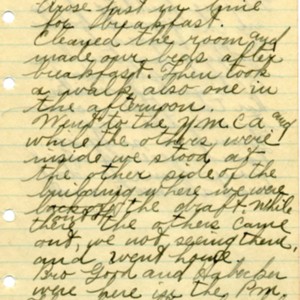 Arose just in time
for breakfast.
Cleaned the room and
made our beds after
breakfast. Then took
a walk also one in
the afternoon.
Went to the Y.M.C.A. and
while the others were
inside we stood at
the other side of the
building where we were
the draft. While
there the others came
out, we not seeing them,
and, went home.
Bro Good and
were here in the P.M.